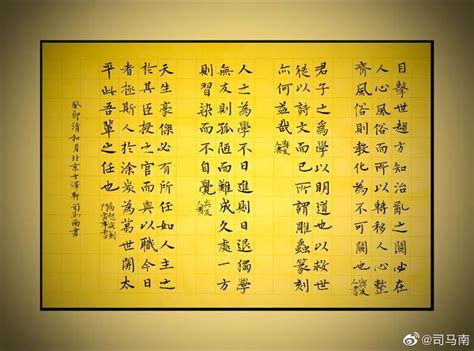 目擊世趨方知治亂之關必在
人心風俗而所以轉移人心整
齊風俗則教化為不可闕也
君子之為學以明道也以救世
徒以詩文而已所謂雕蟲篆刻
亦何益哉
人之為學不日進則日退獨學
無友則孤陋而難成久處一方
則習染而不自覺
天生豪傑必有所任如人主之
於其臣授之官而與以職今日
者拯斯人於塗炭為萬世開太
平此吾輩之任也
癸卯清和月北京方澤軒司馬南書
@司马南